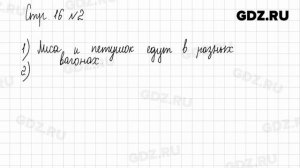 GDZ.RU
Стр 16 №2
1) Лиса и петушок едут в разных
вагонах.
2)